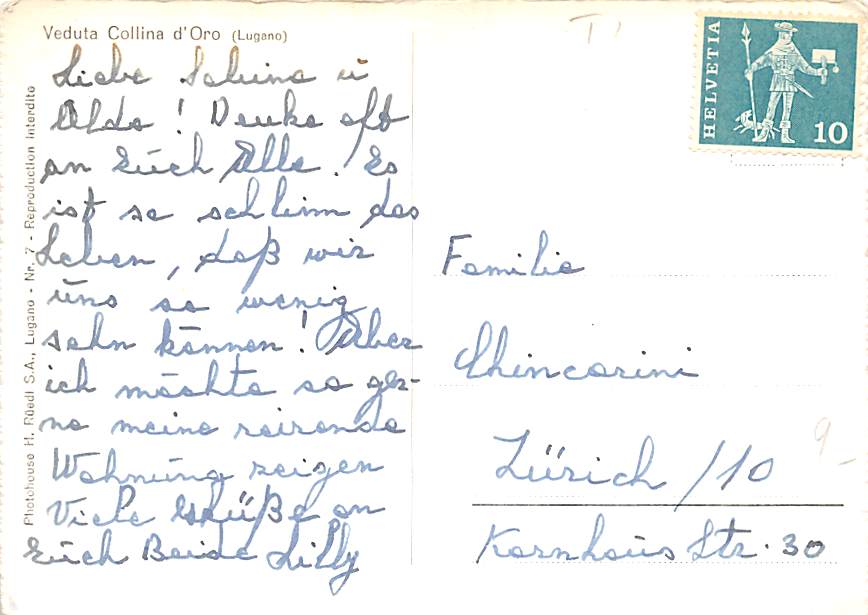 Veduta Collina d'Oro (Lugano)
Liebe Sabina u
Aldo! Denke oft
an Euch Alle. Es
ist so schlimm das
Leben, daß wir
uns so wenig
sehn können! Aber
ich möchte so ger-
ne meine reizende
Wohnung zeigen
Viele Grüße an
Euch Beide Lilly
Photohouse H. Rüedi S.A., Lugano - Nr. 7 - Reproduction interdite
HELVETIA
10
Familie
Chincarini
Zürich /10
Kornhaus Str. 30
T
9-